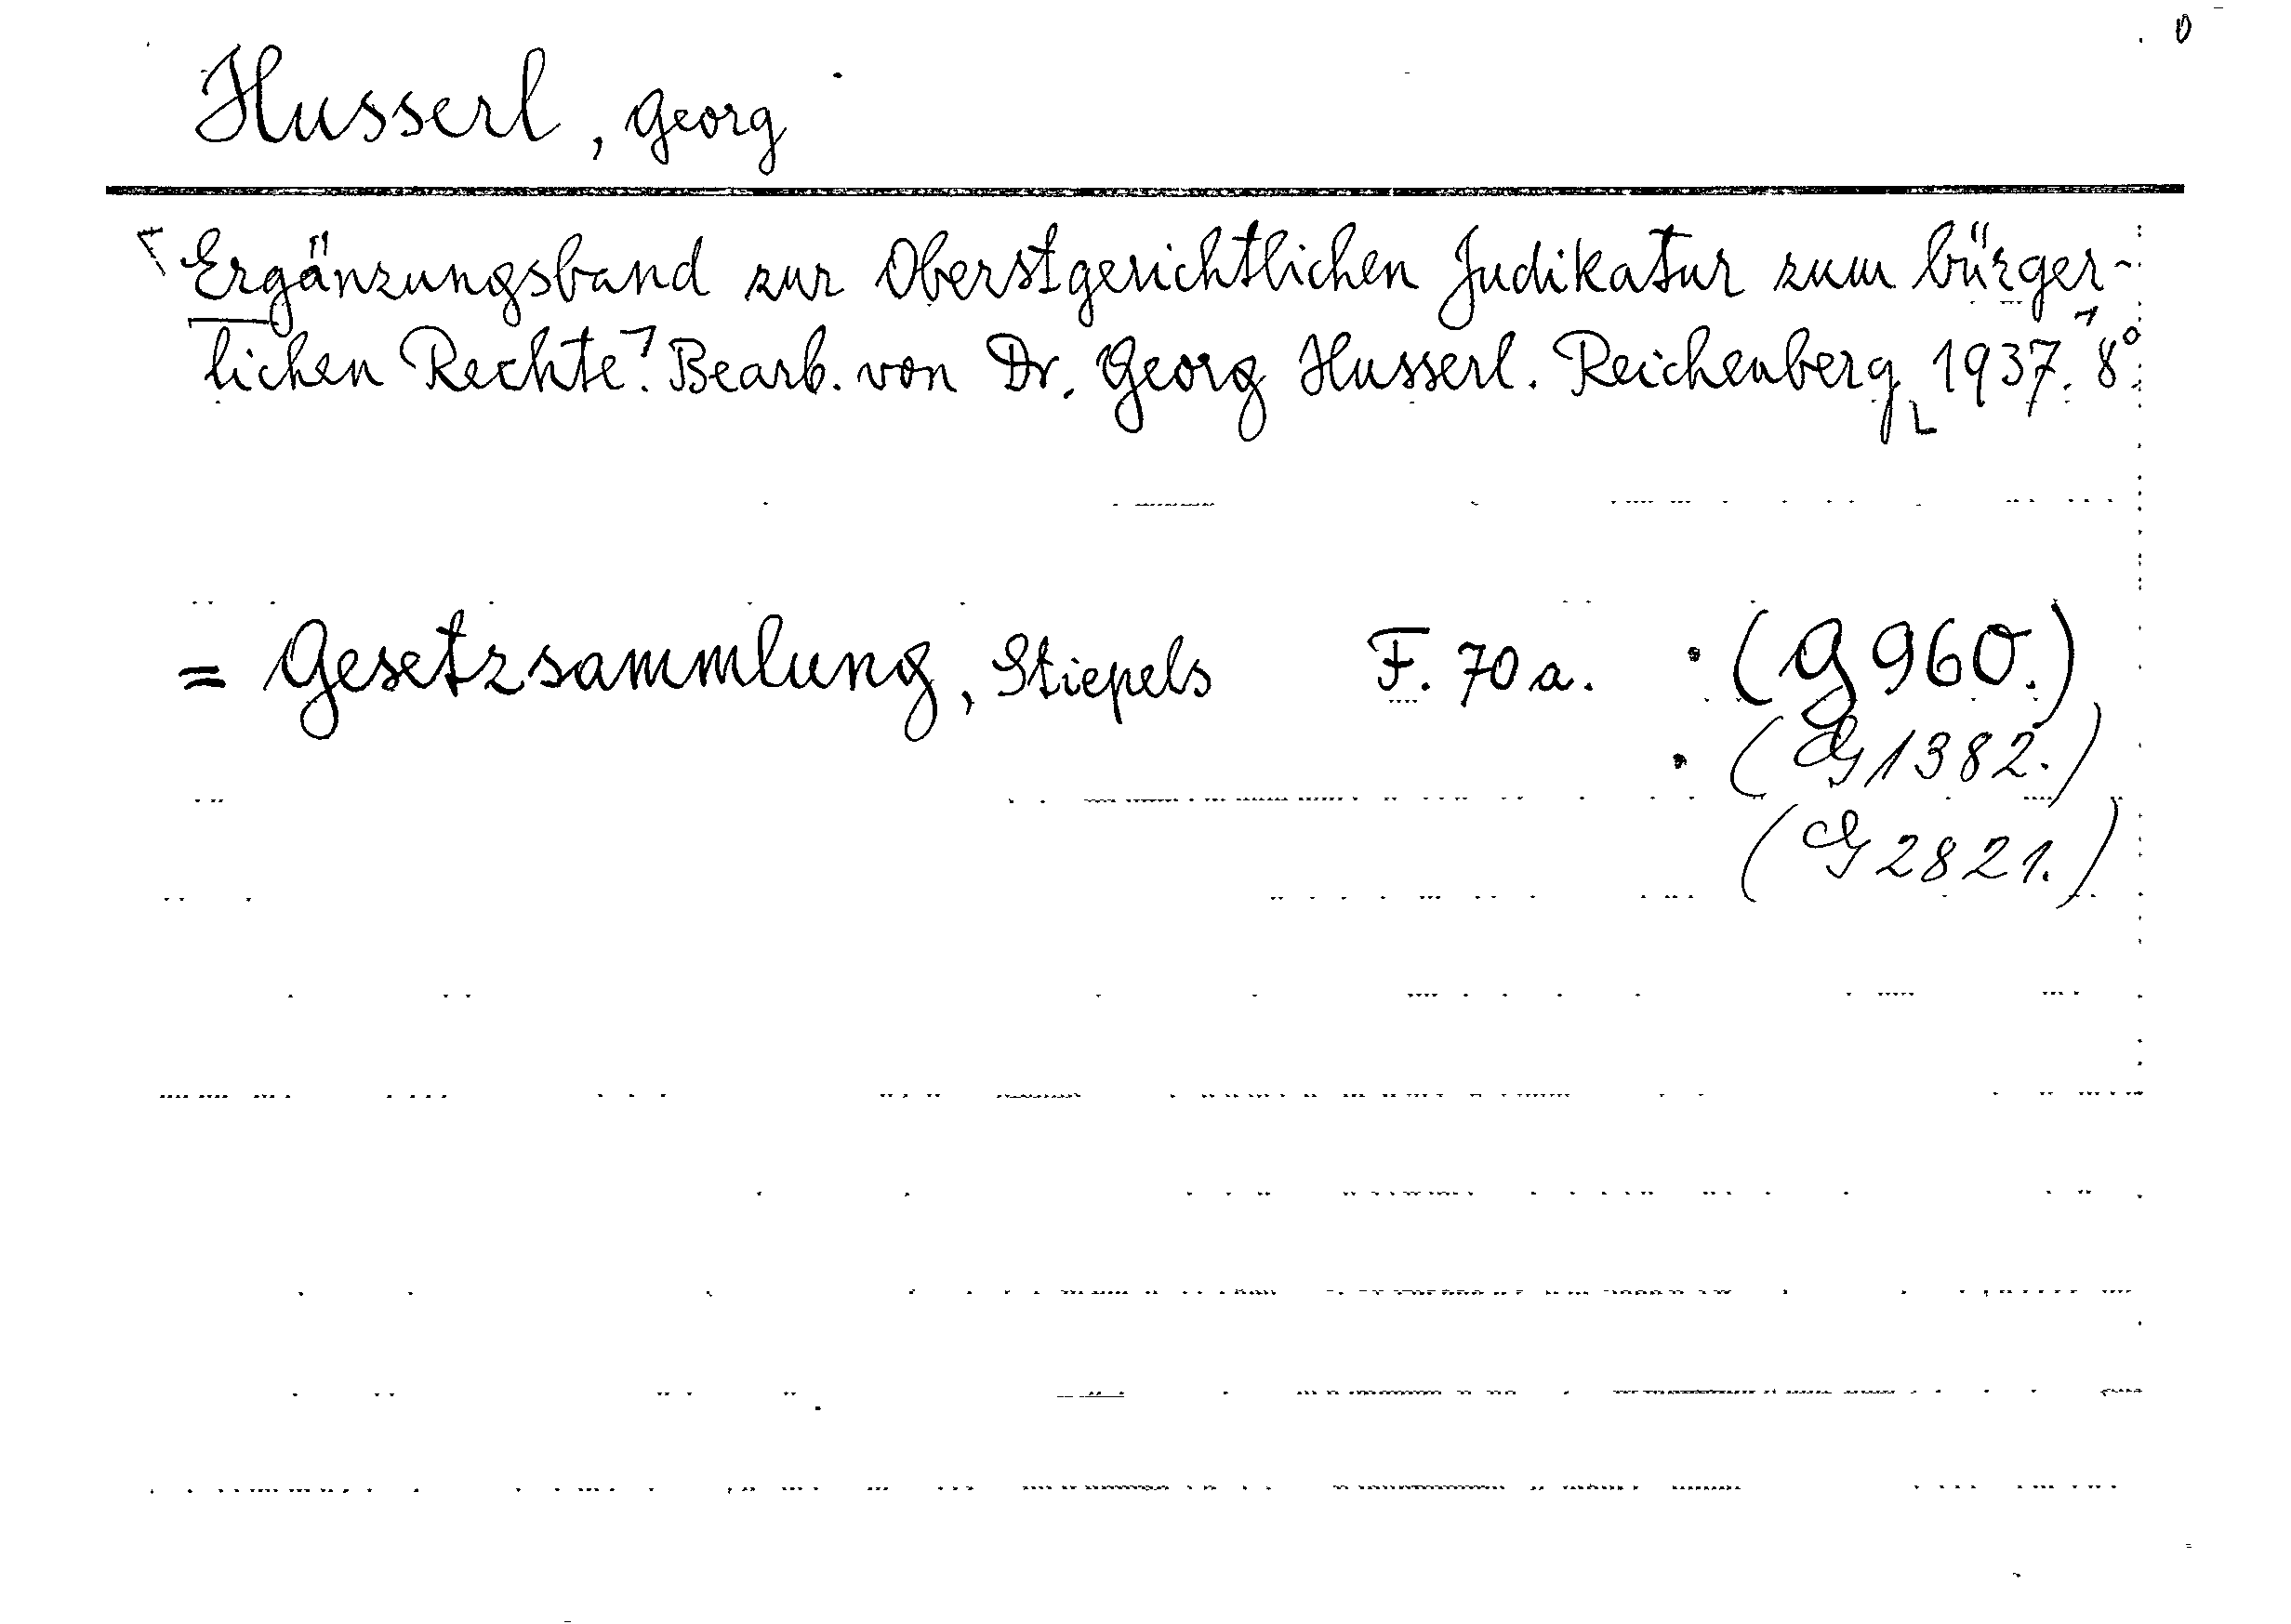 Husserl, Georg
Ergänzungsband zur Oberstgerichtlichen Judikatur zum bürger-
lichen Rechte. Bearb. von Dr. Georg Husserl. Reichenberg 1937. 8°
= Gesetzsammlung, Stiepels F. 70a. (G 960.)
(G 1382.)
(G 2821.)